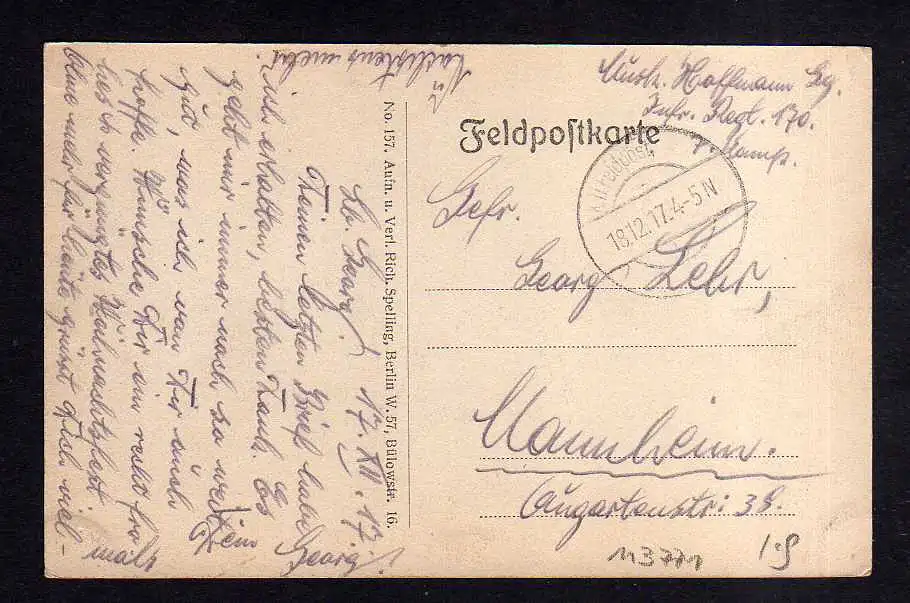 Musk. Hoffmann Gg.
Infr. Regt. 170.
Komp.
Feldpostkarte
K.D. Feldpost
18.12.17.4-5N
Gefr.
Georg Lehr,
Mannheim.
Augartenstr: 38.
113771
1.9
No. 157. Aufn. u. Verl. Rich. Spelling, Berlin W. 57, Bülowstr. 16.
17. XII. 17.
Lb. Georg!
Deinen letzten Brief habe
ich erhalten, besten Dank. Es
geht mir immer noch so weit
gut, was ich von Dir auch
hoffe. Wünsche Dir ein recht fro
hes u. vergnügtes Weihnachtsfest
mehr für heute grüsst Dich viel-
mals Dein
Georg.
Nächstens mehr